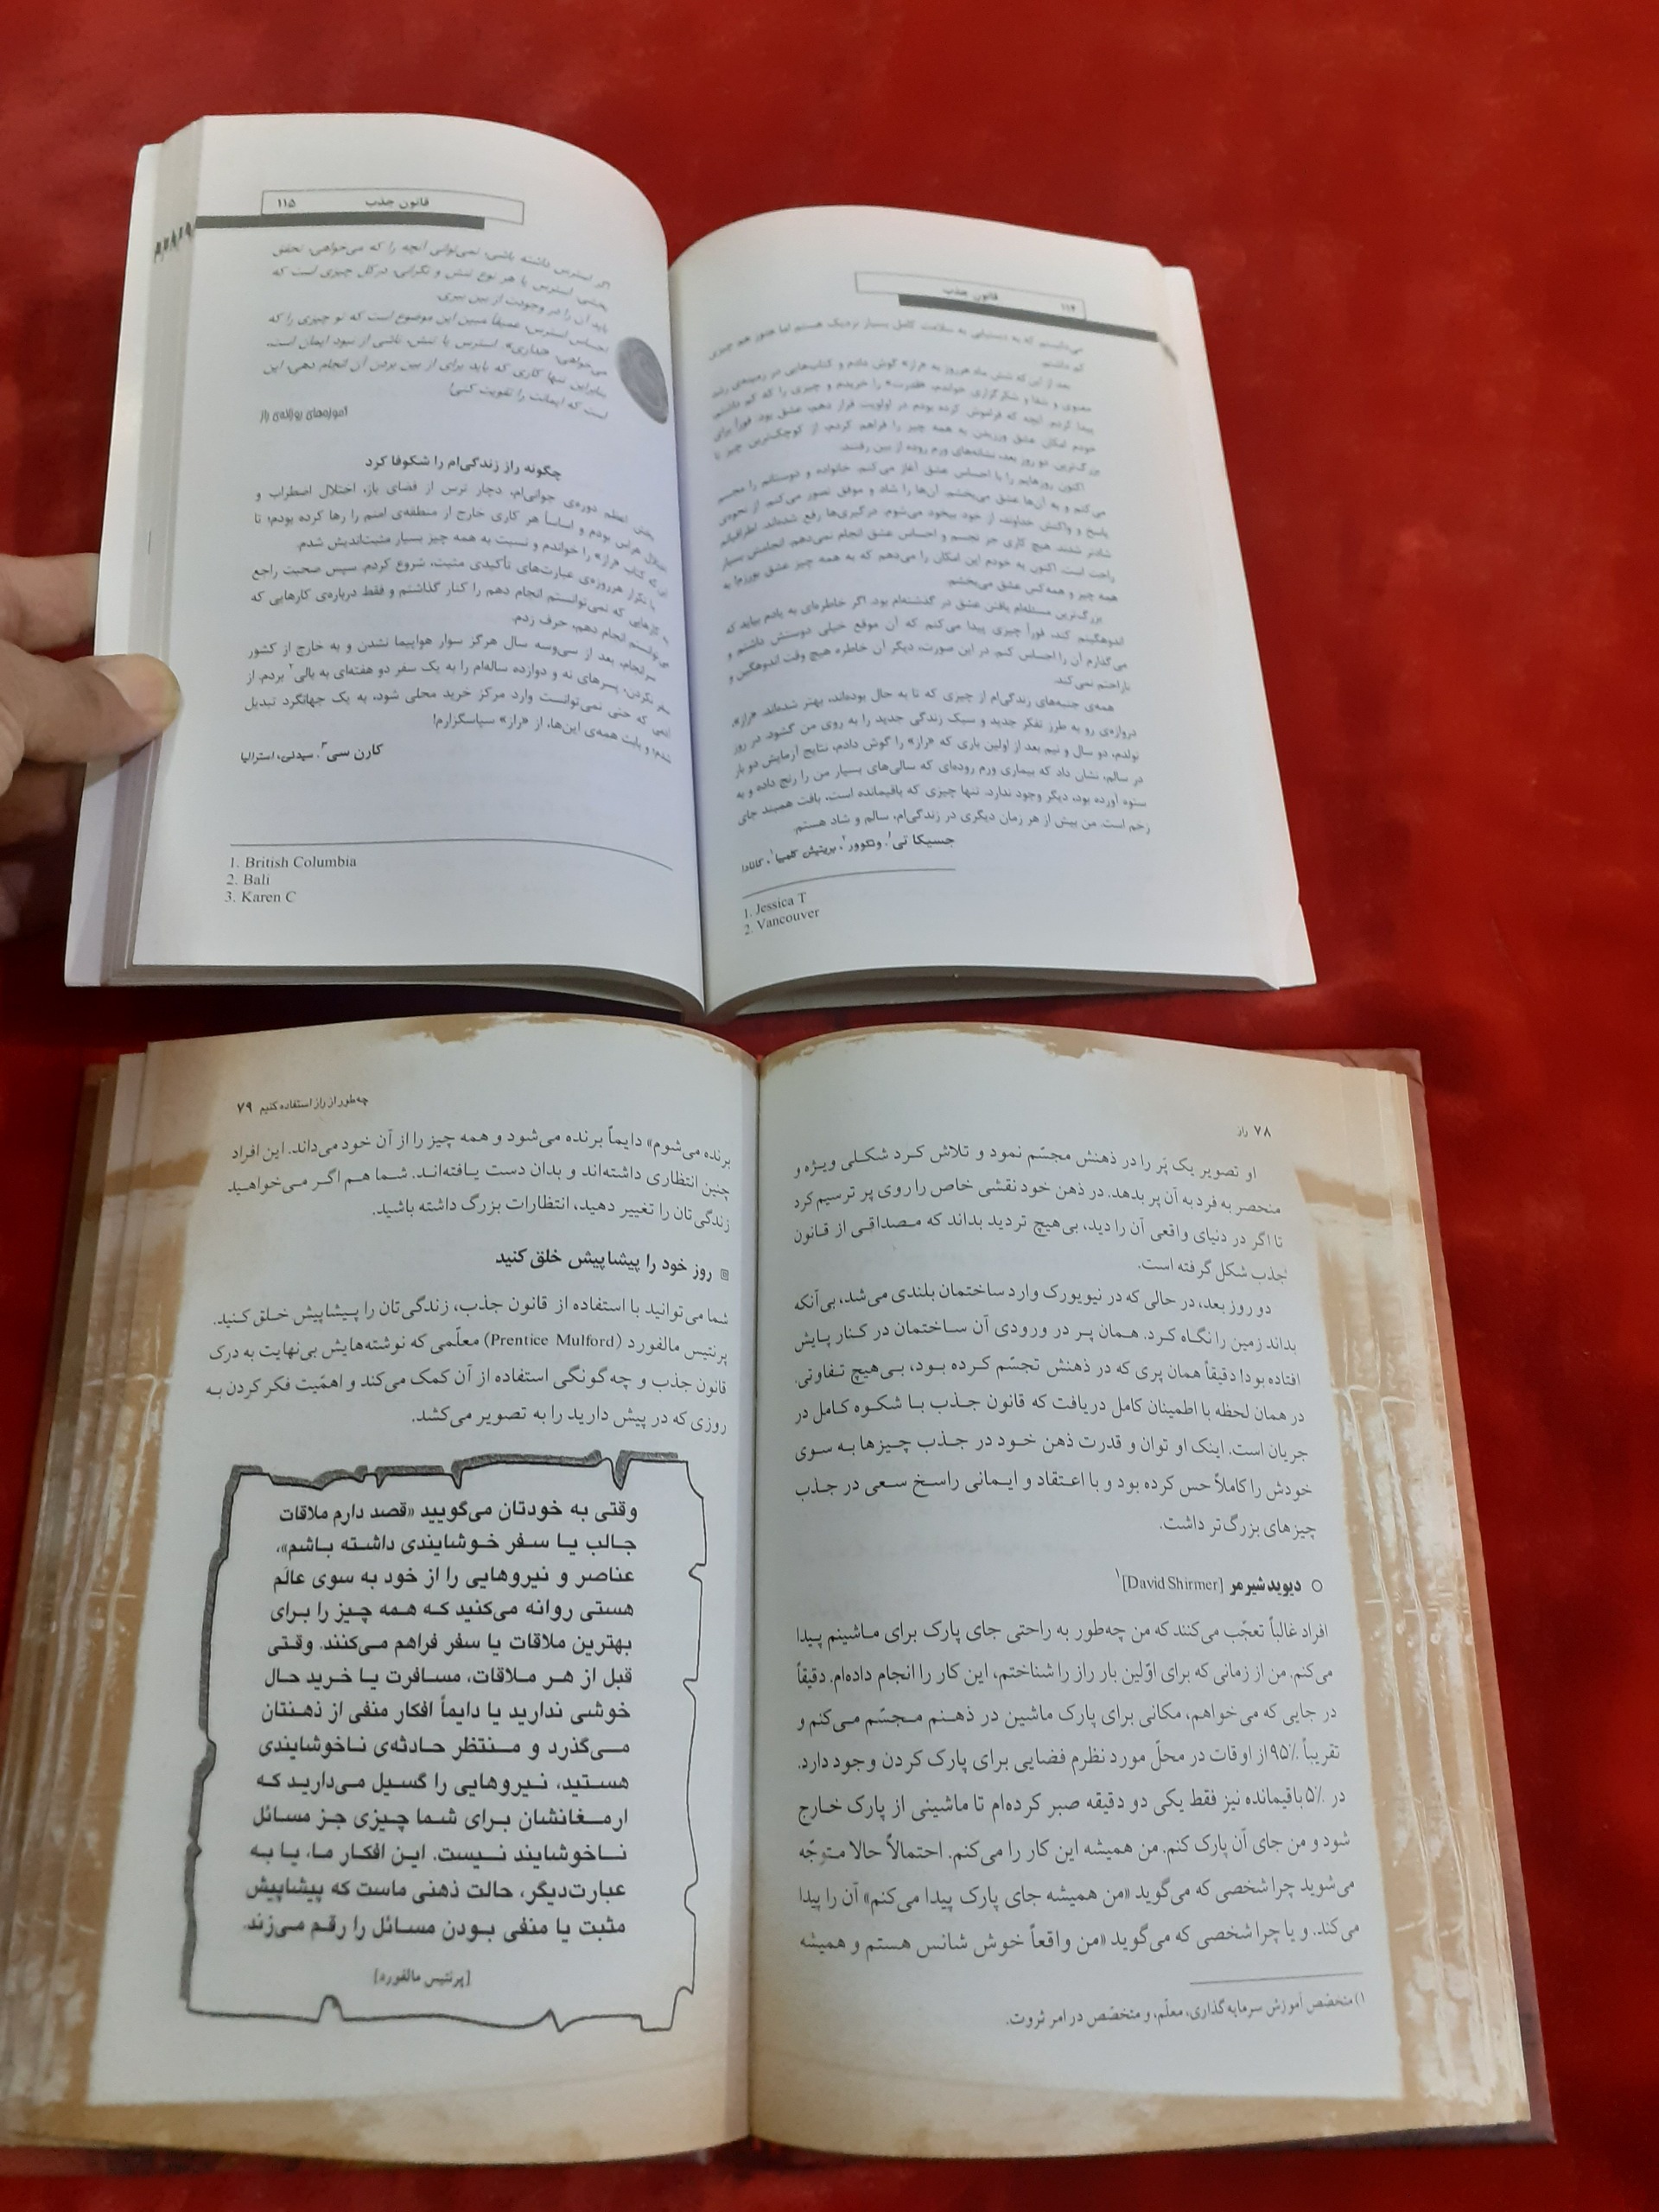 ۱۱۴ قانون جذب
می‌دانستم که به دستیابی به سلامت کامل بسیار نزدیک هستم اما هنوز هم چیزی
کم داشتم.
بعد از این که شش ماه هرروز به «راز» گوش دادم و کتاب‌هایی در زمینه‌ی رشد
معنوی و شفا و شکرگزاری خواندم، «قدرت» را خریدم و چیزی را که کم داشتم،
پیدا کردم. آنچه که فراموش کرده بودم در اولویت قرار دهم، عشق بود. فوراً برای
خودم امکان عشق ورزیدن به همه چیز را فراهم کردم، از کوچک‌ترین چیز تا
بزرگ‌ترین. دو روز بعد، نشانه‌های ورم روده از بین رفتند.
اکنون روزهایم را با احساس عشق آغاز می‌کنم. خانواده و دوستانم را مجسم
می‌کنم و به آن‌ها عشق می‌بخشم. آن‌ها را شاد و موفق تصور می‌کنم. از نحوه‌ی
پاسخ و واکنش خداوند، از خود بیخود می‌شوم. درگیری‌ها رفع شده‌اند. اطرافیانم
شادتر شدند. هیچ کاری جز تجسم و احساس عشق انجام نمی‌دهم. انجامش بسیار
راحت است. اکنون به خودم این امکان را می‌دهم که به همه چیز عشق بورزم! به
همه چیز و همه‌کس عشق می‌بخشم.
بزرگ‌ترین مسئله‌ام یافتن عشق در گذشته‌ام بود. اگر خاطره‌ای به یادم بیاید که
اندوهگینم کند، فوراً چیزی پیدا می‌کنم که آن موقع خیلی دوستش داشتم و
می‌گذارم آن را احساس کنم. در این صورت، دیگر آن خاطره هیچ وقت اندوهگین و
ناراحتم نمی‌کند.
همه‌ی جنبه‌های زندگی‌ام از چیزی که تا به حال بوده‌اند، بهتر شده‌اند. «راز»،
دروازه‌ی رو به طرز تفکر جدید و سبک زندگی جدید را به روی من گشود. در روز
تولدم، دو سال و نیم بعد از اولین باری که «راز» را گوش دادم، نتایج آزمایش دو بار
در سالم، نشان داد که بیماری ورم روده‌ای که سالی‌های بسیار من را رنج داده و به
ستوه آورده بود، دیگر وجود ندارد. تنها چیزی که باقیمانده است، بافت همبند جای
زخم است. من بیش از هر زمان دیگری در زندگی‌ام، سالم و شاد هستم.
جسیکا تی۱، ونکوور۲، بریتیش کلمبیا۱، کانادا
1. Jessica T
2. Vancouver
قانون جذب ۱۱۵
اگر استرس داشته باشی، نمی‌توانی آنچه را که می‌خواهی، تحقق
بخشی. استرس یا هر نوع تنش و نگرانی، درکل چیزی است که
باید آن را در وجودت از بین ببری.
احساس استرس، عمیقاً مبین این موضوع است که تو چیزی را که
می‌خواهی، «نداری». استرس یا تنش، ناشی از نبود ایمان است،
بنابراین تنها کاری که باید برای از بین بردن آن انجام دهی، این
است که ایمانت را تقویت کنی!
آموزه‌های روزانه‌ی راز
چگونه راز زندگی‌ام را شکوفا کرد
بخش اعظم دوره‌ی جوانی‌ام، دچار ترس از فضای باز، اختلال اضطراب و
اختلال هراس بودم و اساساً هر کاری خارج از منطقه‌ی امنم را رها کرده بودم؛ تا
این که کتاب «راز» را خواندم و نسبت به همه چیز بسیار مثبت‌اندیش شدم.
با تکرار هرروزه‌ی عبارت‌های تأکیدی مثبت، شروع کردم. سپس صحبت راجع
به کارهایی که نمی‌توانستم انجام دهم را کنار گذاشتم و فقط درباره‌ی کارهایی که
می‌توانستم انجام دهم، حرف زدم.
سرانجام، بعد از سی‌وسه سال هرگز سوار هواپیما نشدن و به خارج از کشور
سفر نکردن، پسرهای نه و دوازده ساله‌ام را به یک سفر دو هفته‌ای به بالی۲ بردم. از
آدمی که حتی نمی‌توانست وارد مرکز خرید محلی شود، به یک جهانگرد تبدیل
شدم؛ و بابت همه‌ی این‌ها، از «راز» سپاسگزارم!
کارن سی۳، سیدنی، استرالیا
1. British Columbia
2. Bali
3. Karen C
۷۸ راز
او تصویر یک پَر را در ذهنش مجسّم نمود و تلاش کرد شکلی ویژه و
منحصر به فرد به آن پر بدهد. در ذهن خود نقشی خاص را روی پر ترسیم کرد
تا اگر در دنیای واقعی آن را دید، بی‌هیچ تردید بداند که مصداقی از قانون
جذب شکل گرفته است.
دو روز بعد، در حالی که در نیویورک وارد ساختمان بلندی می‌شد، بی‌آنکه
بداند زمین را نگاه کرد. همان پر در ورودی آن ساختمان در کنار پایش
افتاده بود! دقیقاً همان پری که در ذهنش تجسّم کرده بود، بی‌هیچ تفاوتی.
در همان لحظه با اطمینان کامل دریافت که قانون جذب با شکوه کامل در
جریان است. اینک او توان و قدرت ذهن خود در جذب چیزها به سوی
خودش را کاملاً حس کرده بود و با اعتقاد و ایمانی راسخ سعی در جذب
چیزهای بزرگ‌تر داشت.
○ دیوید شیرمر [David Shirmer]۱
افراد غالباً تعجّب می‌کنند که من چه‌طور به راحتی جای پارک برای ماشینم پیدا
می‌کنم. من از زمانی که برای اوّلین بار راز را شناختم، این کار را انجام داده‌ام. دقیقاً
در جایی که می‌خواهم، مکانی برای پارک ماشین در ذهنم مجسّم می‌کنم و
تقریباً ۹۵٪ از اوقات در محلّ مورد نظرم فضایی برای پارک کردن وجود دارد.
در ۵٪ باقیمانده نیز فقط یکی دو دقیقه صبر کرده‌ام تا ماشینی از پارک خارج
شود و من جای آن پارک کنم. من همیشه این کار را می‌کنم. احتمالاً حالا متوجّه
می‌شوید چرا شخصی که می‌گوید «من همیشه جای پارک پیدا می‌کنم» آن را پیدا
می‌کند. و یا چرا شخصی که می‌گوید «من واقعاً خوش شانس هستم و همیشه
۱) متخصّص آموزش سرمایه‌گذاری، معلّم، و متخصّص در امر ثروت.
چه‌طور از راز استفاده کنیم ۷۹
برنده می‌شوم» دایماً برنده می‌شود و همه چیز را از آن خود می‌داند. این افراد
چنین انتظاری داشته‌اند و بدان دست یافته‌اند. شما هم اگر می‌خواهید
زندگی‌تان را تغییر دهید، انتظارات بزرگ داشته باشید.
روز خود را پیشاپیش خلق کنید
شما می‌توانید با استفاده از قانون جذب، زندگی‌تان را پیشاپیش خلق کنید.
پرنتیس مالفورد (Prentice Mulford) معلّمی که نوشته‌هایش بی‌نهایت به درک
قانون جذب و چه‌گونگی استفاده از آن کمک می‌کند و اهمّیت فکر کردن به
روزی که در پیش دارید را به تصویر می‌کشد.
وقتی به خودتان می‌گویید «قصد دارم ملاقات
جالب یا سفر خوشایندی داشته باشم»،
عناصر و نیروهایی را از خود به سوی عالَم
هستی روانه می‌کنید که همه چیز را برای
بهترین ملاقات یا سفر فراهم می‌کنند. وقتی
قبل از هر ملاقات، مسافرت یا خرید حال
خوشی ندارید یا دایماً افکار منفی از ذهنتان
می‌گذرد و منتظر حادثه‌ی ناخوشایندی
هستید، نیروهایی را گسیل می‌دارید که
ارمغانشان برای شما چیزی جز مسائل
ناخوشایند نیست. این افکار ما، یا به
عبارت‌دیگر، حالت ذهنی ماست که پیشاپیش
مثبت یا منفی بودن مسائل را رقم می‌زند.
[پرنتیس مالفورد]